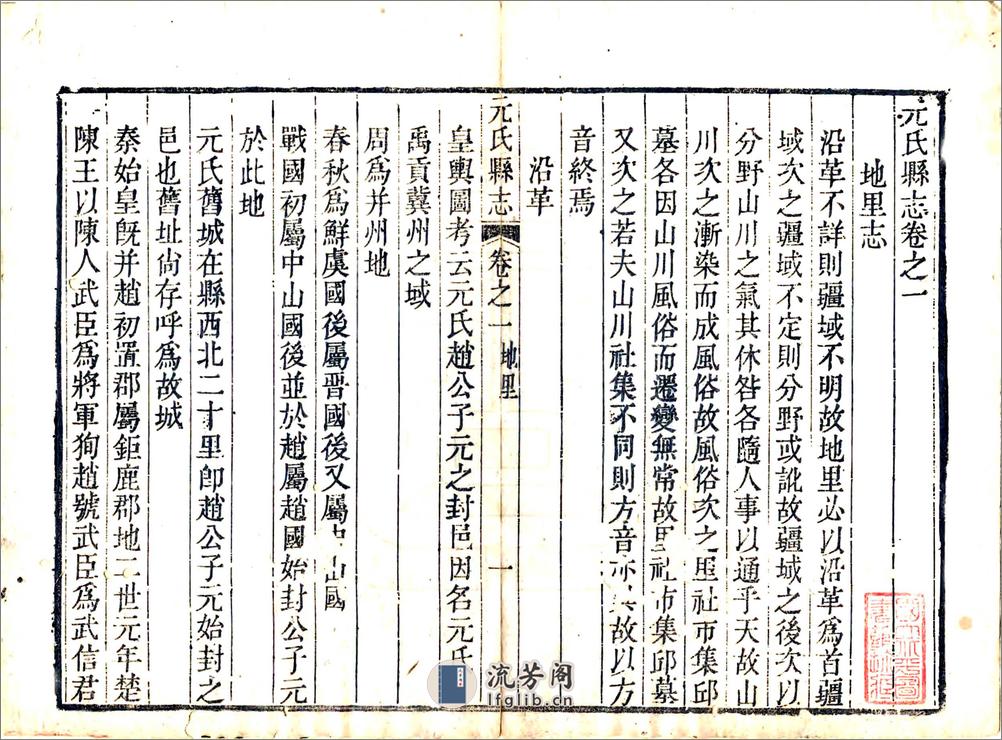 元氏縣志卷之一
地里志
沿革不詳則疆域不明故地里必以沿革爲首疆
域次之疆域不定則分野或訛故疆域之後次以
分野山川之氣其休咎各隨人事以通乎天故山
川次之漸染而成風俗故風俗次之里社市集邱
墓各因山川風俗而遷變無常故里社市集邱墓
又次之若夫山川社集不同則方音亦異故以方
音終焉
沿革
元氏縣志
卷之一
地里
一
皇輿圖考云元氏趙公子元之封邑因名元氏
禹貢冀州之域
周爲并州地
春秋爲鮮虞國後屬晋國後又屬中山國
戰國初屬中山國後並於趙屬趙國始封公子元
於此地
元氏舊城在縣西北二十里卽趙公子元始封之
邑也舊址尙存呼爲故城
秦始皇旣并趙初置郡屬鉅鹿郡地二世元年楚
陳王以陳人武臣爲將軍狥趙號武臣爲武信君
流芳阁
lfglib.cn